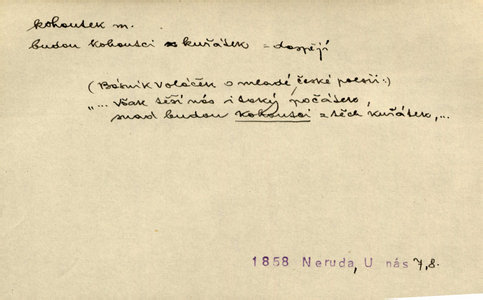 kohoutek m.
budou kohoutci z kuřátek = dospějí
(Básník Voláček o mladé české poesii:)
"... Však těší nás i taký počátek,
snad budou kohoutci z těch kuřátek,...
1858 Neruda, U nás 7,8.